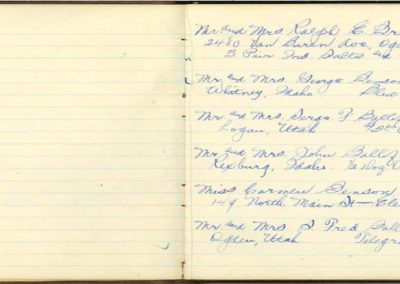 Mr. and Mrs Ralph E. Br
2480 Van Buren Ave, Og
3 Pair Ind. Salts and
Mr. and Mrs. George Benson
Whitney, Idaho Blue
Mr. and Mrs. Serge F. Ball
Logan, Utah $5.00
Mr. and Mrs. John Ball
Rexburg, Idaho. ½ Doz
Miss Carmen Benson
149 North Main St — Ele
Mr. and Mrs S Fred Ball
Ogden, Utah Telegr